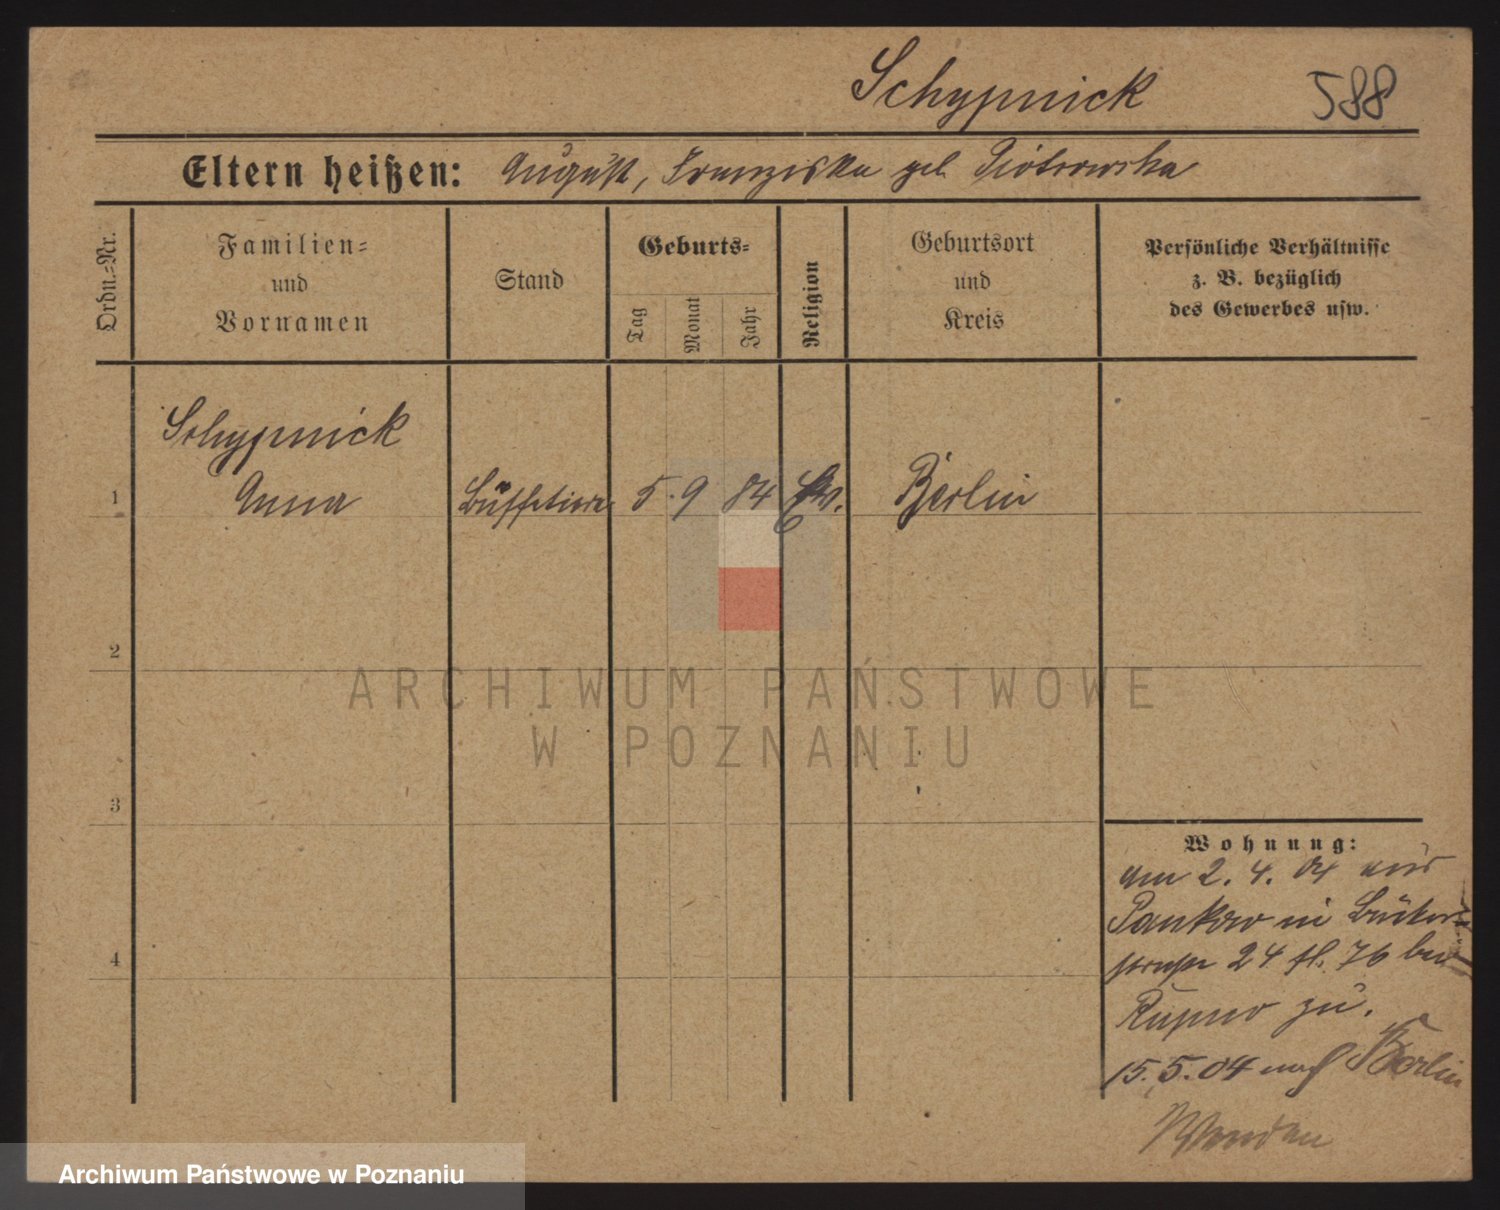 Schypnick 588
Eltern heißen: August, Franziska geb. Piotrowska
Ordn.-Nr.
Familien-
und
Vornamen
Stand
Geburts-
Tag
Monat
Jahr
Religion
Geburtsort
und
Kreis
Persönliche Verhältnisse
z. B. bezüglich
des Gewerbes usw.
Schypnick
1 Anna Büffetiere 5. 9 84 Ev. Berlin
2
3
4
Wohnung:
am 2. 4. 04 aus
Pankow in
24 76 bei
zu.
15. 5. 04 nach Berlin
ARCHIWUM PAŃSTWOWE
W POZNANIU
Archiwum Państwowe w Poznaniu